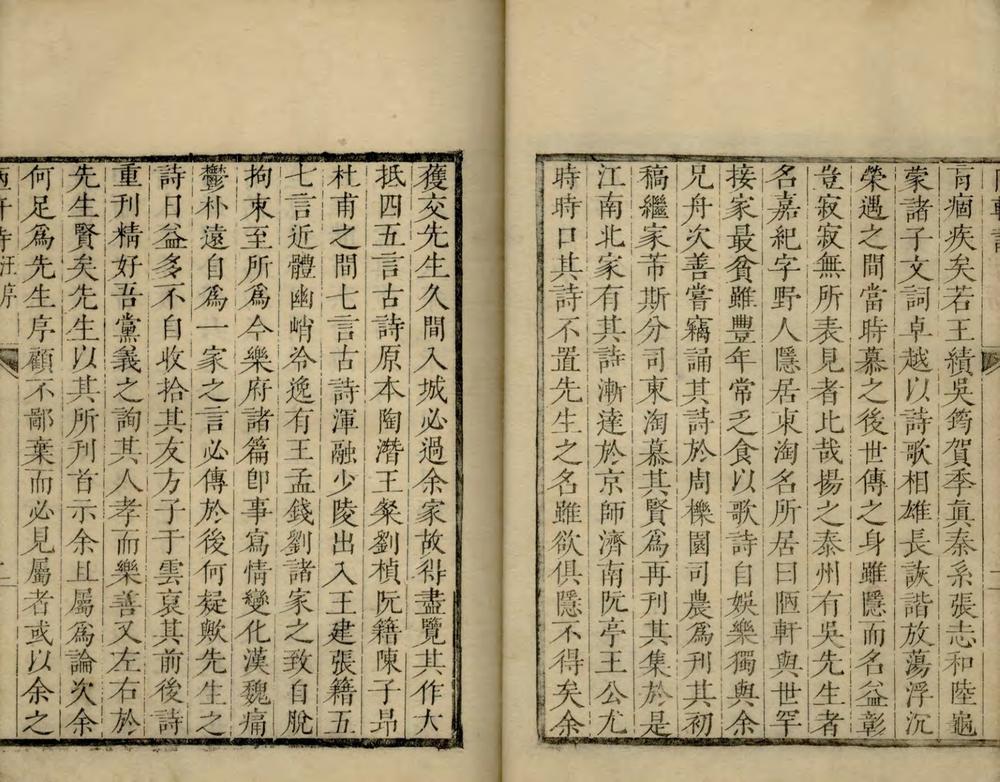 陋軒詩
膏痼疾矣若王績吳筠賀季真秦系張志和陸龜
蒙諸子文詞卓越以詩歌相雄長詼諧放蕩浮沉
榮遇之間當時慕之後世傳之身雖隱而名益彰
豈寂寂無所表見者比哉揚之泰州有吳先生者
名嘉紀字野人隱居東淘名所居曰陋軒與世罕
接家最貧雖豐年常乏食以歌詩自娛樂獨與余
兄舟次善嘗竊誦其詩於周櫟園司農為刊其初
稿繼家芾斯分司東淘慕其賢為再刊其集於是
江南北家有其詩漸達於京師濟南阮亭王公尤
時時口其詩不置先生之名雖欲俱隱不得矣余
獲交先生久間入城必過余家故得盡覽其作大
抵四五言古詩原本陶潛王粲劉楨阮籍陳子昂
杜甫之間七言古詩渾融少陵出入王建張籍五
七言近體幽峭冷逸有王孟錢劉諸家之致自脫
拘束至所為今樂府諸篇即事寫情變化漢魏痛
鬱朴遠自為一家之言必傳於後何疑歟先生之
詩日益多不自收拾其友方子于雲哀其前後詩
重刊精好吾黨義之詢其人孝而樂善又左右於
先生賢矣先生以其所刊首示余且屬為論次余
何足為先生序顧不鄙棄而必見屬者或以余之
汪序
二